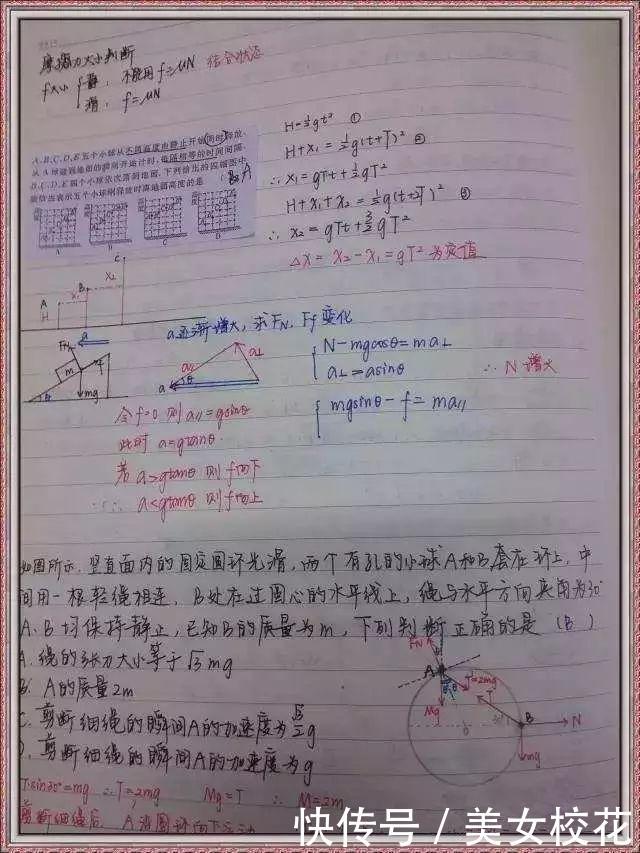 摩擦力大小判断
f大小 { 静：不能用f=μN 结合状态
滑：f=μN
A、B、C、D、E五个小球从不同高度由静止开始同时释放，
从A球碰到地面的瞬间开始计时，每隔相等的时间间隔，
B、C、D、E四个小球依次落到地面。下列给出的四幅图中，
能恰当表示五个小球刚释放时离地面高度的是
A
A B C D
H=½gt² ①
H+x₁=½g(t+T)² ②
∴x₁=gTt+½gT²
H+x₁+x₂=½g(t+2T)² ③
∴x₂=gTt+3/2gT²
Δx=x₂-x₁=gT² 为定值
A B C
H x₁ x₂
a逐渐增大，求FN、Ff变化
FN a
m f
mg θ
a∥ a⊥
a θ
{ N-mgcosθ=ma⊥
a⊥=asinθ ∴N增大
{ mgsinθ-f=ma∥
令f=0 则a∥=gsinθ
此时 a=gtanθ
若a>gtanθ 则f向下
a<gtanθ 则f向上
如图所示，竖直面内的固定圆环光滑，两个有孔的小球A和B套在环上，中
间用一根轻绳相连，B处在过圆心的水平线上，绳与水平方向夹角为30°
A、B均保持静止，已知B的质量为m，下列判断正确的是（B）
A. 绳的张力大小等于√3mg
B. A的质量2m
C. 剪断细绳的瞬间A的加速度为√3/2g
D. 剪断细绳的瞬间A的加速度为g
FN A T=2mg T
Mg B N
mg
T·sin30°=mg ∴T=2mg Mg=T ∴M=2m
剪断细绳后，A沿圆环向下运动
快传号 / 美女校花